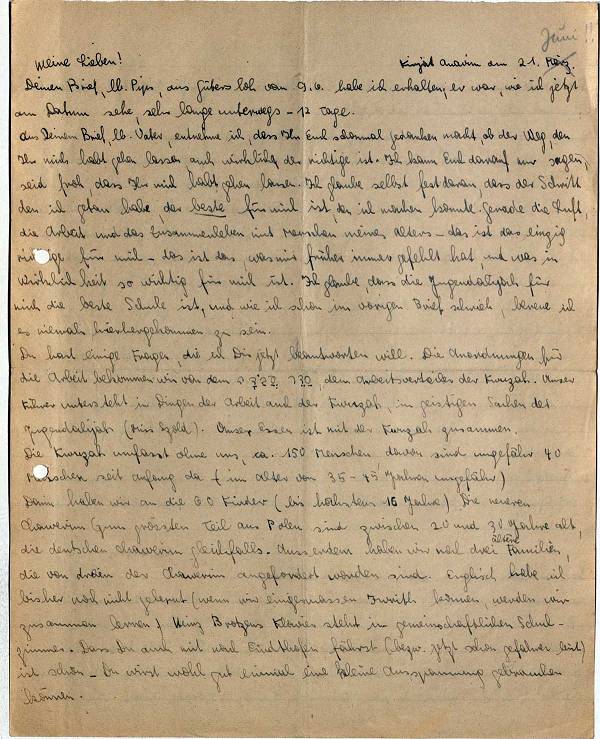 Juni!!
Meine Lieben! Kirjat Anavim am 21. März.
Deinen Brief, lb. Pips, aus Gütersloh vom 9.6. habe ich erhalten, er war, wie ich jetzt
am Datum sehe, sehr lange unterwegs - 12 Tage.
Aus Deinem Brief, lb. Vater, entnehme ich, dass Ihr Euch schonmal Gedanken macht, ob der Weg, den
Ihr mich habt gehen lassen auch wirklich der richtige ist. Ich kann Euch darauf nur sagen,
seid froh, dass Ihr mich habt gehen lassen. Ich glaube selbst fest daran, dass der Schritt
den ich getan habe, der beste für mich ist den ich machen konnte. Gerade die Luft,
die Arbeit und das Zusammenleben mit Menschen meines Alters - das ist das einzig
richtige für mich - das ist das, was mir früher immer gefehlt hat, und was in
Wirklichkeit so wichtig für mich ist. Ich glaube, dass die Jugendalijah für
mich die beste Schule ist, und wie ich schon im vorigen Brief schrieb, bereue ich
es niemals hierhergekommen zu sein.
Du hast einige Fragen, die ich Dir jetzt beantworten will. Die Anordnungen für
die Arbeit bekommen wir von dem סדרן, dem Arbeitsverteiler der Kwuzah. Unser
Führer untersteht in Dingen der Arbeit auch der Kwuzah, in geistigen Sachen der
Jugendalijah (Miss Szold). Unser Essen ist mit der Kwuzah zusammen.
Die Kwuzah umfasst ohne uns, ca. 150 Menschen davon sind ungefähr 40
Menschen seit Anfang da (im Alter von 35-45 Jahren ungefähr)
Dann haben wir an die 60 Kinder (bis höchstens 16 Jahre) Die neueren
Chawerim (zum grössten Teil aus Polen sind zwischen 20 und 30 Jahre alt,
die deutschen Chawerim gleichfalls. Ausserdem haben wir noch drei ältere Familien,
die von den Chawerim angefordert worden sind. Englisch habe ich
bisher noch nicht gelernt (wenn wir einigermassen Iwrith können, werden wir
zusammen lernen) Heinz Brotzens Klavier steht im gemeinschaftlichen Schul-
zimmer. Dass Du auch mit nach Eindhoven fährst (bezw. jetzt schon gefahren bist)
ist schön - Du wirst wohl gut einmal eine kleine Ausspannung gebrauchen
können.